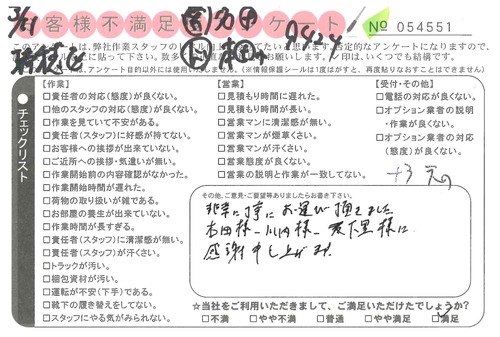 お客様不満足アンケート
№ 054551
このアンケートは、弊社作業スタッフの
否定的なアンケートになりますので、
に貼って下さい。
印は、いくつでも結構です。
アンケート目的以外には使用いたしません。(※情報保護シールは1度がはすと、再度貼りなおすことはできません)
チェックリスト
【作業】
□責任者の対応(態度)が良くない。
□他のスタッフの対応(態度)が良くない。
□作業を見ていて不安がある。
□責任者(スタッフ)に好感が持てない。
□お客様への挨拶が出来ていない。
□ご近所への挨拶・気遣いが無い。
□作業開始前の内容確認がなかった。
□作業開始時間が遅れた。
□荷物の取り扱いが雑である。
□お部屋の養生が出来ていない。
□作業時間が長すぎる。
□責任者(スタッフ)に清潔感が無い。
□責任者(スタッフ)が汗くさい。
□トラックが汚い。
□梱包資材が汚い。
□運転が不安(下手)である。
□靴下の履き替えをしてない。
□スタッフにやる気がみられない。
【営業】
□見積もり時間に遅れた。
□見積もり時間が長い。
□営業マンに清潔感が無い。
□営業マンが煙草くさい。
□営業マンが汗くさい。
□営業態度が良くない。
□営業の説明と作業が一致してない。
【受付・その他】
□電話の対応が良くない。
□オプション業者の説明
・作業が良くない。
□オプション業者の対応
(態度)が良くない。
その他、ご意見・ご要望等ありましたらお書き下さい。
非常に丁寧にお運び頂きました
本田様、川内様、
様に
感謝申し上げます
☆当社をご利用いただきまして、ご満足いただけたでしょうか?
□不満 □やや不満 □普通 □やや満足 □満足